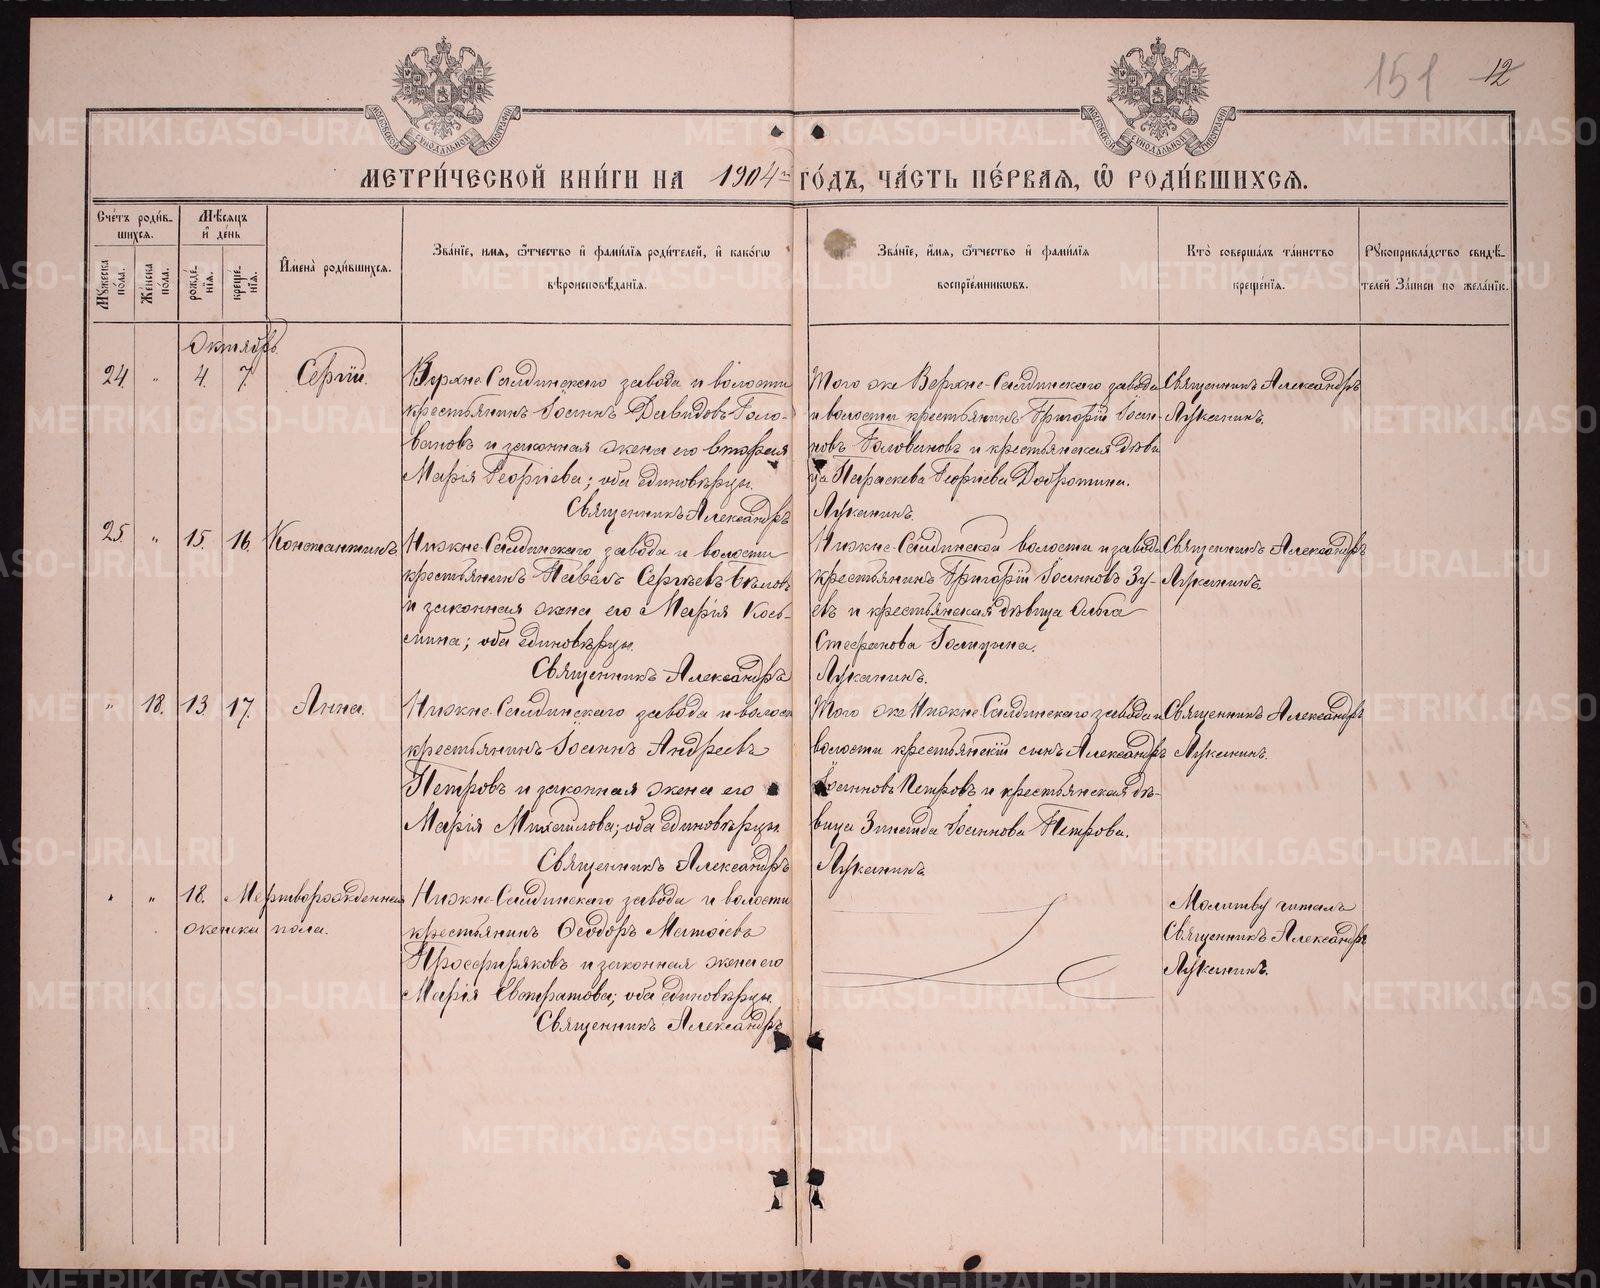 151 12
МОСКОВСКОЙ СѴНОДАЛЬНОЙ ТИПОГРАФІИ
МОСКОВСКОЙ СѴНОДАЛЬНОЙ ТИПОГРАФІИ
МЕТРИ́ЧЕСКОЙ КНИ́ГИ НА 1904 й ГО́ДЪ, ЧА́СТЬ ПЕ́РВАЯ, Ѡ РОДИ́ВШИХСЯ.
Сче́тъ роди́вшихся.
Му́жеска по́ла.
Же́нска по́ла.
Мѣ́сяцъ и де́нь
рожде́нія.
креще́нія.
И́мена̀ роди́вшихся.
Зва́ніе, и́мя, ѻ́тчество и́ фами́лія роди́телей, и́ како́гѡ
вѣроисповѣ́данія.
Зва́ніе, и́мя, ѻ́тчество и́ фами́лія
воспріе́мникѡвъ.
Кто̀ соверша́лъ та́инство
креще́нія.
Рꙋкоприкла́дство свидѣ́-
телей за́писи по жела́нію.
Октябрь.
24. " 4. 7. Сергій.
Верхне-Салдинскаго завода и волости
крестьянинъ Іоаннъ Давидовъ Голо-
вановъ и законная жена его вторая
Марія Георгіева; оба единовѣрцы.
Священникъ Александръ
Того же Верхне-Салдинскаго завода
и волости крестьянинъ Григорій Іоан-
новъ Головановъ и крестьянская дѣви
ца Параскева Георгіева Добротина.
Луканинъ.
Священникъ Александръ
Луканинъ.
25. " 15. 16. Константинъ
Нижне-Салдинскаго завода и волости
крестьянинъ Павелъ Сергѣевъ Бѣловъ
и законная жена его Марія Козь-
мина; оба единовѣрцы.
Священникъ Александръ
Нижне-Салдинской волости и завода
крестьянинъ Григорій Іоанновъ Зу-
евъ и крестьянская дѣвица Ольга
Стефанова Голицына.
Луканинъ.
Священникъ Александръ
Луканинъ.
" 18. 13. 17. Анна.
Нижне-Салдинскаго завода и волости
крестьянинъ Іоаннъ Андреевъ
Петровъ и законная жена его
Марія Михайлова; оба единовѣрцы.
Священникъ Александръ
Того же Нижне-Салдинскаго завода и
волости крестьянскій сынъ Александръ
Іоанновъ Петровъ и крестьянская дѣ-
вица Зинаида Іоаннова Петрова.
Луканинъ.
Священникъ Александръ
Луканинъ.
" " 18. Мертворожденная
женска пола.
Нижне-Салдинскаго завода и волости
крестьянинъ Ѳеодоръ Матѳіевъ
Просфиряковъ и законная жена его
Марія Евстратова; оба единовѣрцы.
Священникъ Александръ
Молитву читалъ
Священникъ Александръ
Луканинъ.
METRIKI.GASO-URAL.RU